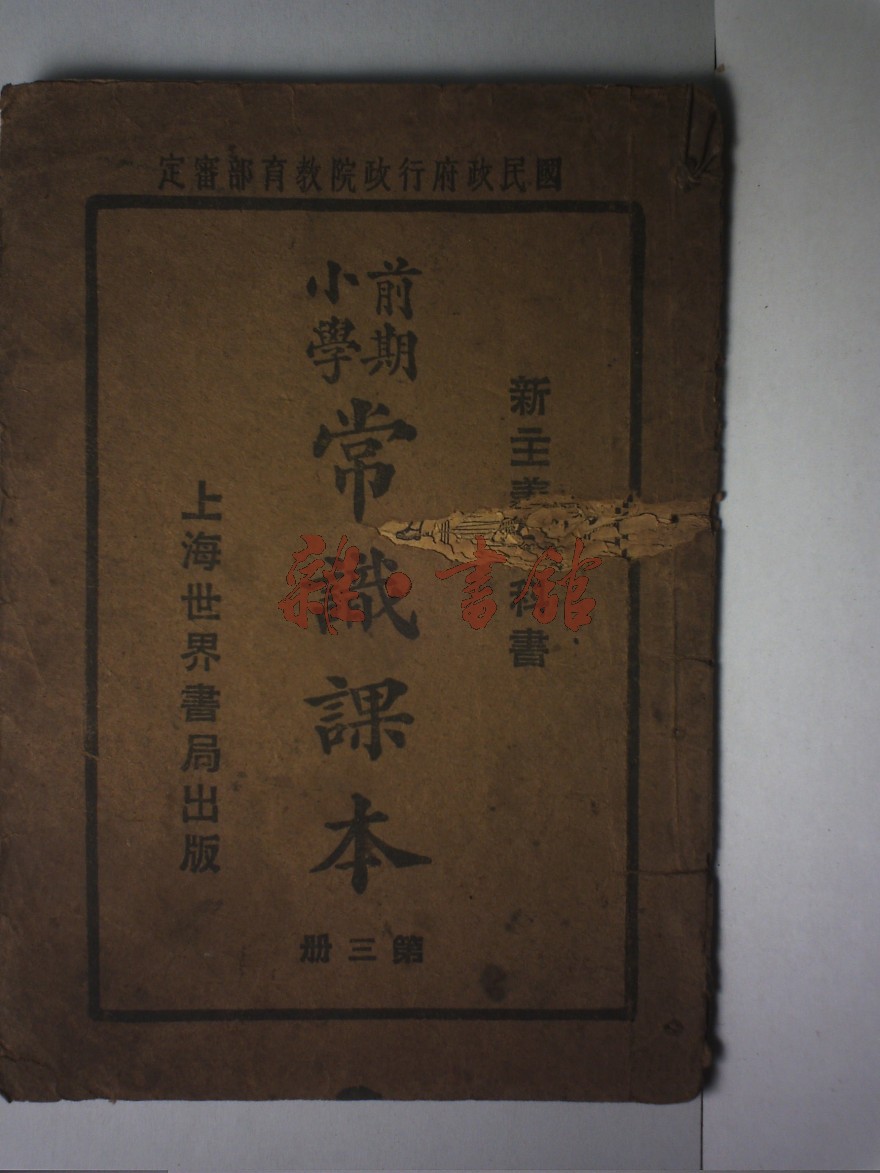 國民政府行政院教育部審定
新主義
科書
前期
小學
常識課本
第三册
上海世界書局出版
雜·書館